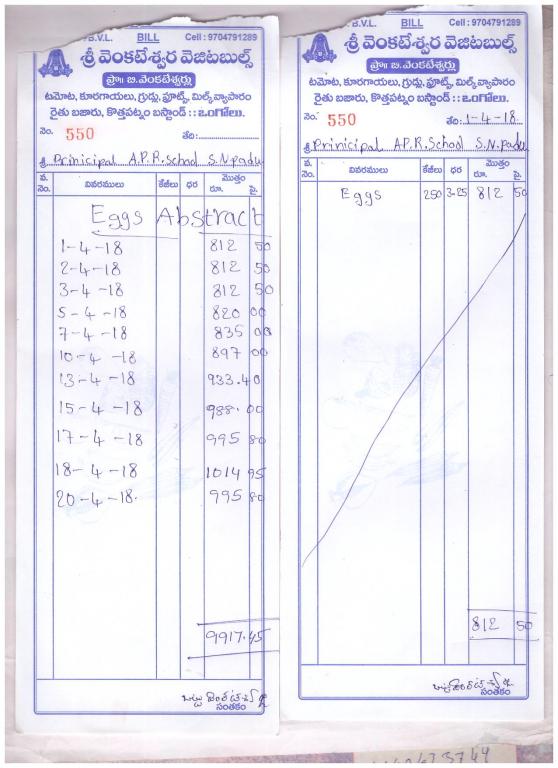 B.V.L. BILL Cell : 9704791289
శ్రీ వెంకటేశ్వర వెజిటబుల్స్
ప్రొ॥ బి.వెంకటేశ్వర్లు
టమోట, కూరగాయలు, గ్రుడ్లు, ఫ్రూట్స్, మిల్క్ వ్యాపారం
రైతు బజారు, కొత్తపట్నం బస్టాండ్ :: ఒంగోలు.
నెం. 550 తేది:
శ్రీ Prinicipal A.P.R.School S.N.Padu
వ. నెం. వివరములు కేజీలు ధర మొత్తం రూ. పై.
Eggs Abstract
1-4-18 812 50
2-4-18 812 50
3-4-18 812 50
5-4-18 820 00
7-4-18 835 00
10-4-18 897 00
13-4-18 933.40
15-4-18 988.00
17-4-18 995 80
18-4-18 1014 95
20-4-18. 995 80
9917.45
సంతకం
B.V.L. BILL Cell : 9704791289
శ్రీ వెంకటేశ్వర వెజిటబుల్స్
ప్రొ॥ బి.వెంకటేశ్వర్లు
టమోట, కూరగాయలు, గ్రుడ్లు, ఫ్రూట్స్, మిల్క్ వ్యాపారం
రైతు బజారు, కొత్తపట్నం బస్టాండ్ :: ఒంగోలు.
నెం. 550 తేది: 1-4-18
శ్రీ Prinicipal A.P.R.School S.N.Padu
వ. నెం. వివరములు కేజీలు ధర మొత్తం రూ. పై.
Eggs 250 3-25 812 50
812 50
సంతకం